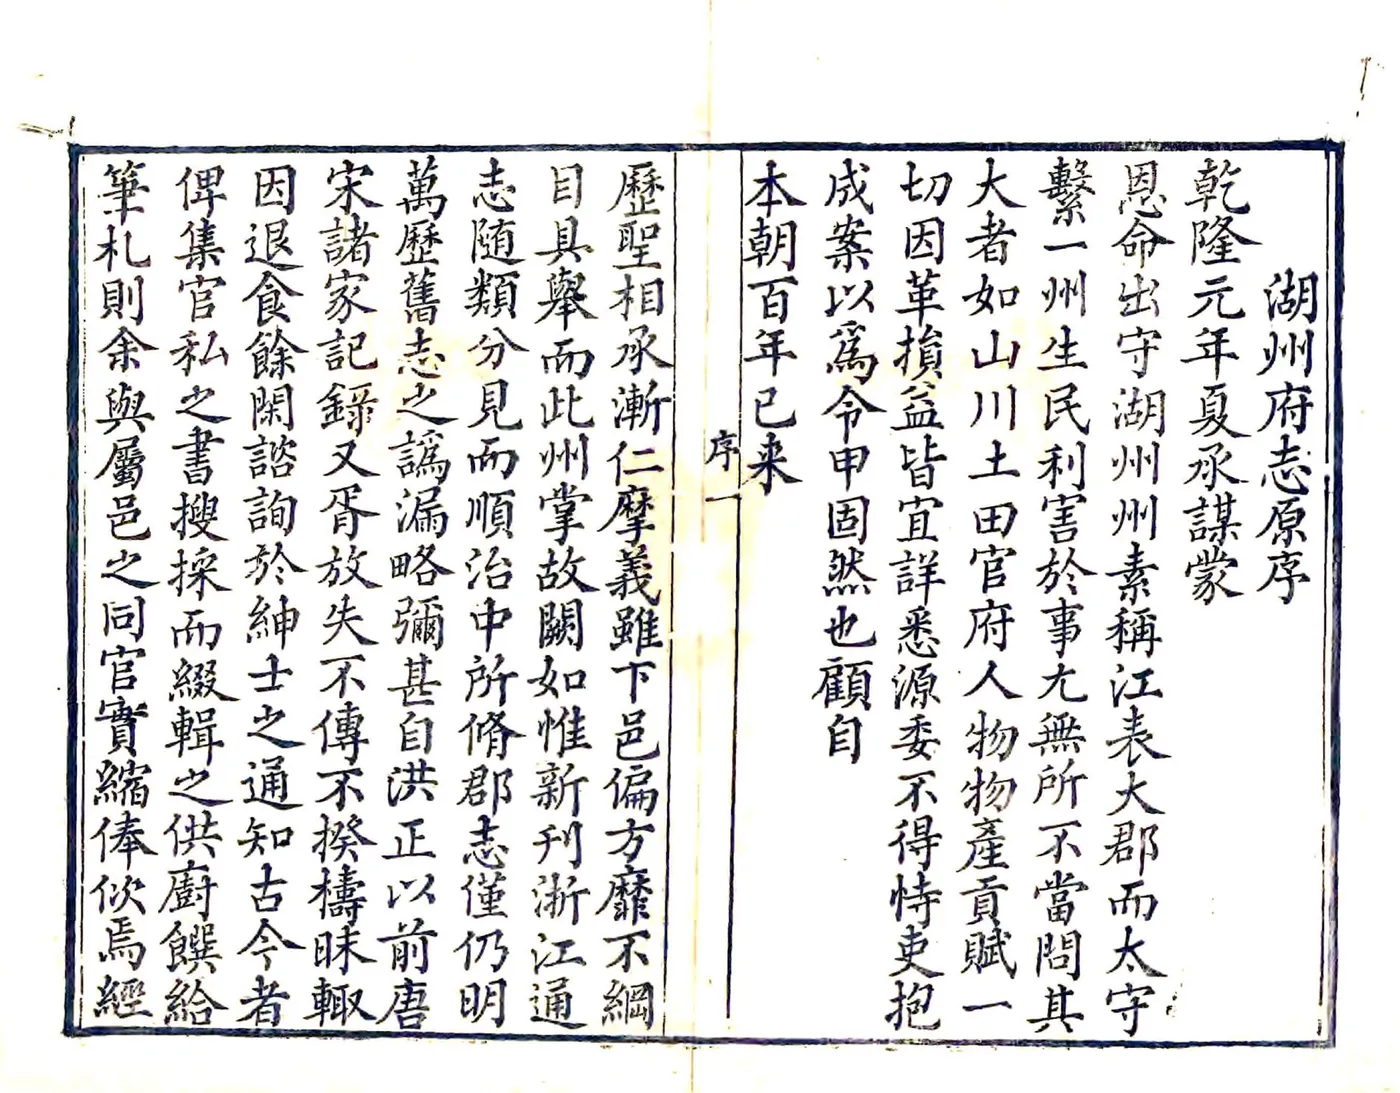 湖州府志原序
乾隆元年夏承謀蒙
恩命出守湖州州素稱江表大郡而太守
繫一州生民利害於事尢無所不當問其
大者如山川土田官府人物物產貢賦一
切因革損益皆宜詳悉源委不得恃吏抱
成案以爲令甲固然也顧自
本朝百年已来
序一
歷聖相承漸仁摩義雖下邑偏方靡不綱
目具舉而此州掌故闕如惟新刋浙江通
志随類分見而順治中所脩郡志僅仍明
萬歷舊志之譌漏略彌甚自洪正以前唐
宋諸家記錄又胥放失不傳不揆檮昧輙
因退食餘閑諮詢於紳士之通知古今者
俾集官私之書搜採而綴輯之供廚饌給
筆札則余與屬邑之同官實縮俸佽焉經